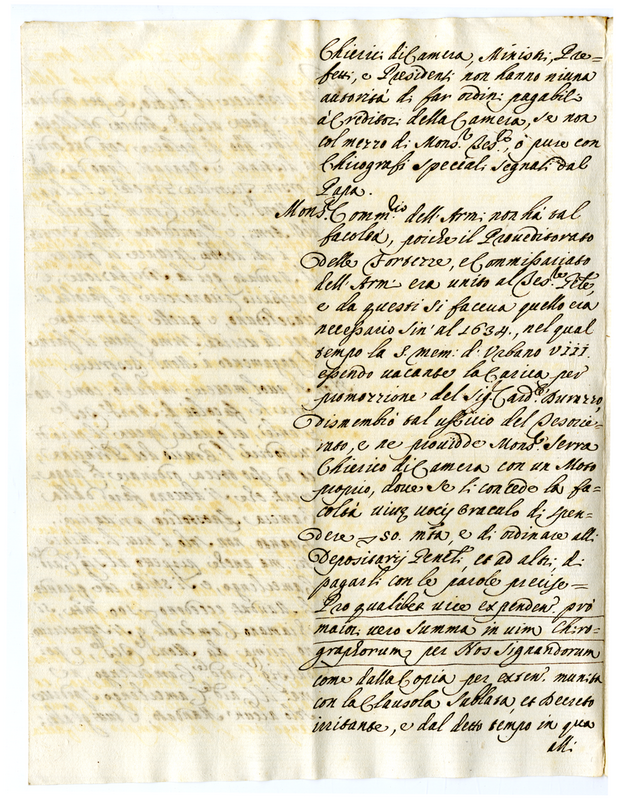 Chierici di Camera, Ministri, Pre=
fetti, e Presidenti non hanno niuna
autorità di far ordini pagabili
à Creditori della Camera, se non
col mezzo di Mons.r Tes.re, ò pure con
Chirografi speciali segnati dal
Papa.
Mons.r Comm.rio dell'Armi non hà tal
facoltà, poiche il Proveditorato
delle Fortezze, e Commissariato
dell'Armi era unito al Tes.re
e da questi si faceva quello era
necessario sin' al 1634., nel qual
tempo la S: mem: d'Urbano VIII.
essendo vacante la Carica per
promozzione del Sig.r Card.le Durazzo,
dismembrò tal ufficio del Tesorie=
rato, e ne providde Mons.r Serra
Chierico di Camera con un Moto
proprio, dove se li concede la fa=
coltà vivę vocis oraculo di spen=
dere 50. mta, e di ordinare alli
Depositarij Genli, et ad altri, di
pagarli con le parole precise=
Pro qualibet vice expenden. pro
maiori vero summa in vim Chiro=
graphorum per Nos signandorum
come dalla Copia per exten. munita
con la Clausola sublata, et Decreto
irritante, e dal detto tempo in qua
alli